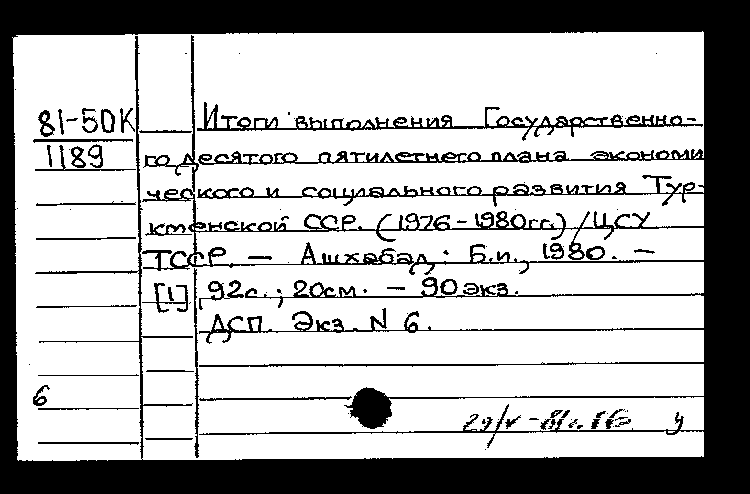 81-50К
1189
Итоги выполнения Государственно-
го десятого пятилетнего плана экономи
ческого и социального развития Тур-
кменской ССР. (1976-1980гг.) /ЦСУ
ТССР. — Ашхабад,: Б.и., 1980. —
[1], 92с.; 20см. — 90экз.
ДСП. Экз. N 6.
6
29/V -81г.
у